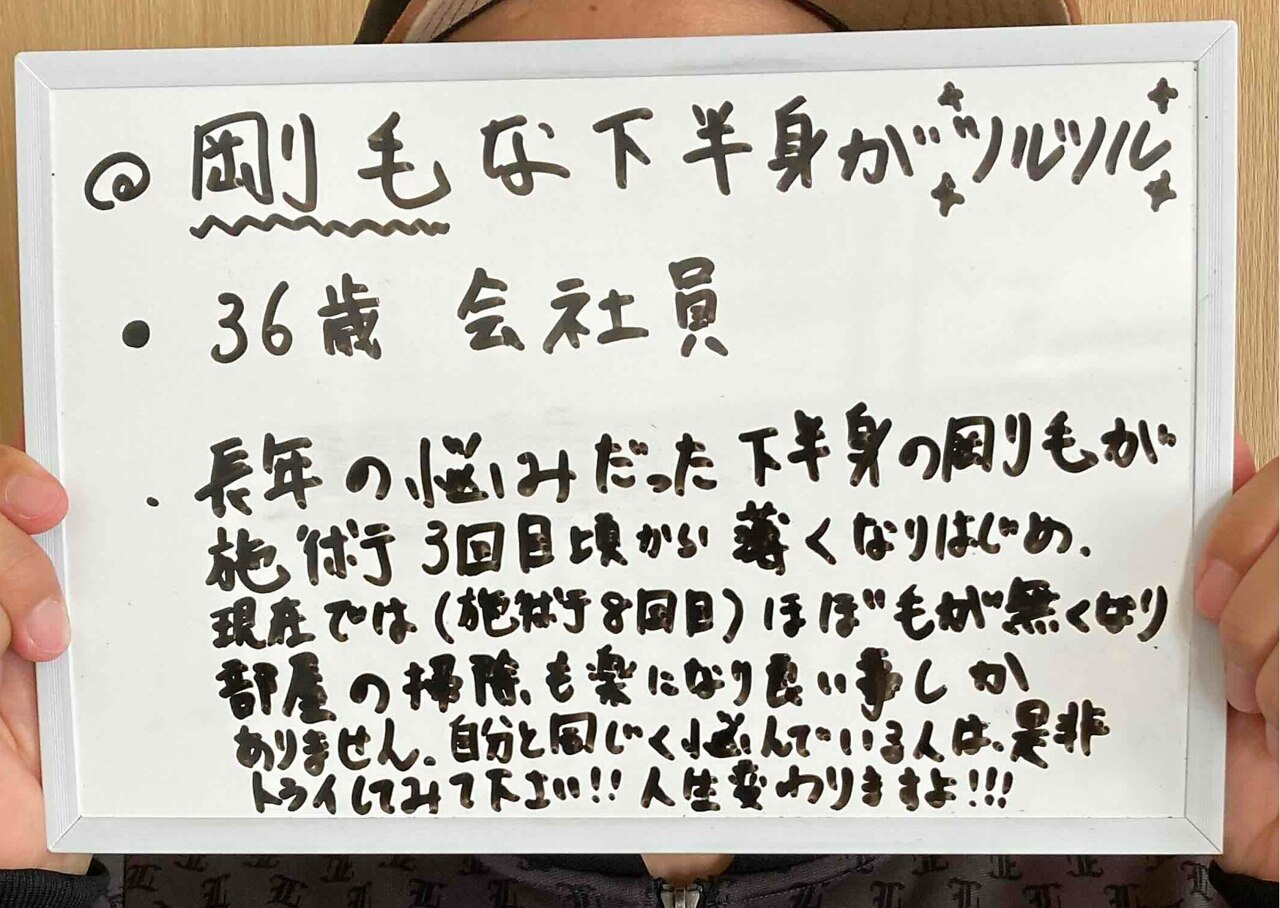 @ 剛毛な下半身がツルツル
• 36歳 会社員
・長年の悩みだった下半身の剛毛が
施術 3回目頃から薄くなりはじめ、
現在では(施術8回目)ほぼ毛が無くなり
部屋の掃除も楽になり良い事しか
ありません。自分と同じく悩んでいる人は、是非
トライしてみて下さい!!人生変わりますよ!!!